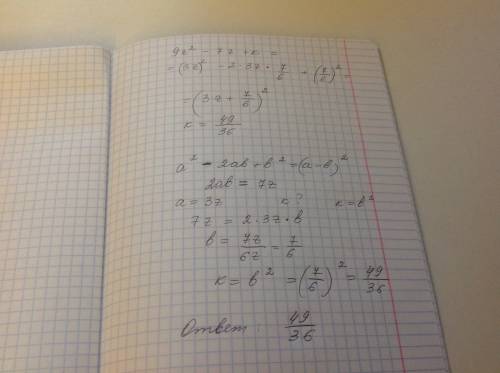 9z² - 7z + к =
= (3z)² - 2 · 3z · 7/6 + (7/6)² =
= (3z + 7/6)²
к = 49/36
a² - 2ab + b² = (a - b)²
2ab = 7z
a = 3z к ? к = b²
7z = 2 · 3z · b
b = 7z/6z = 7/6
к = b² = (7/6)² = 49/36
Ответ: 49/36